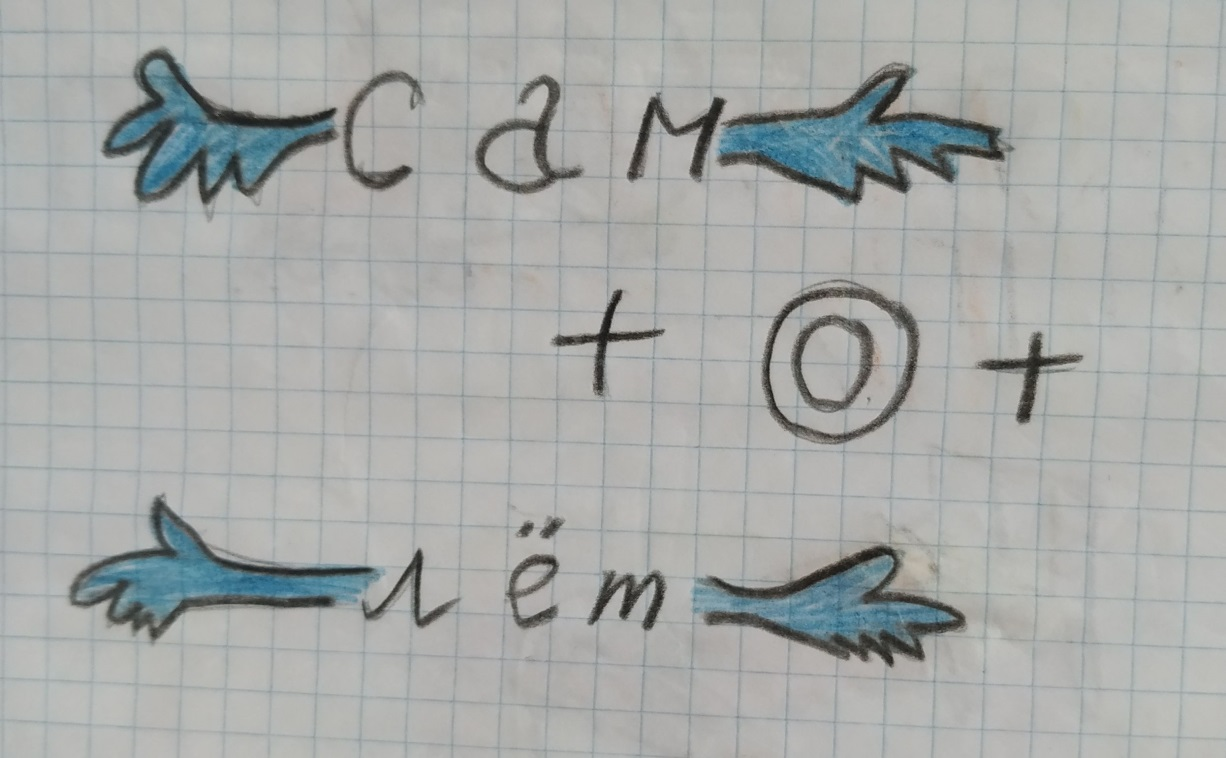 Сам
+ О +
лёт